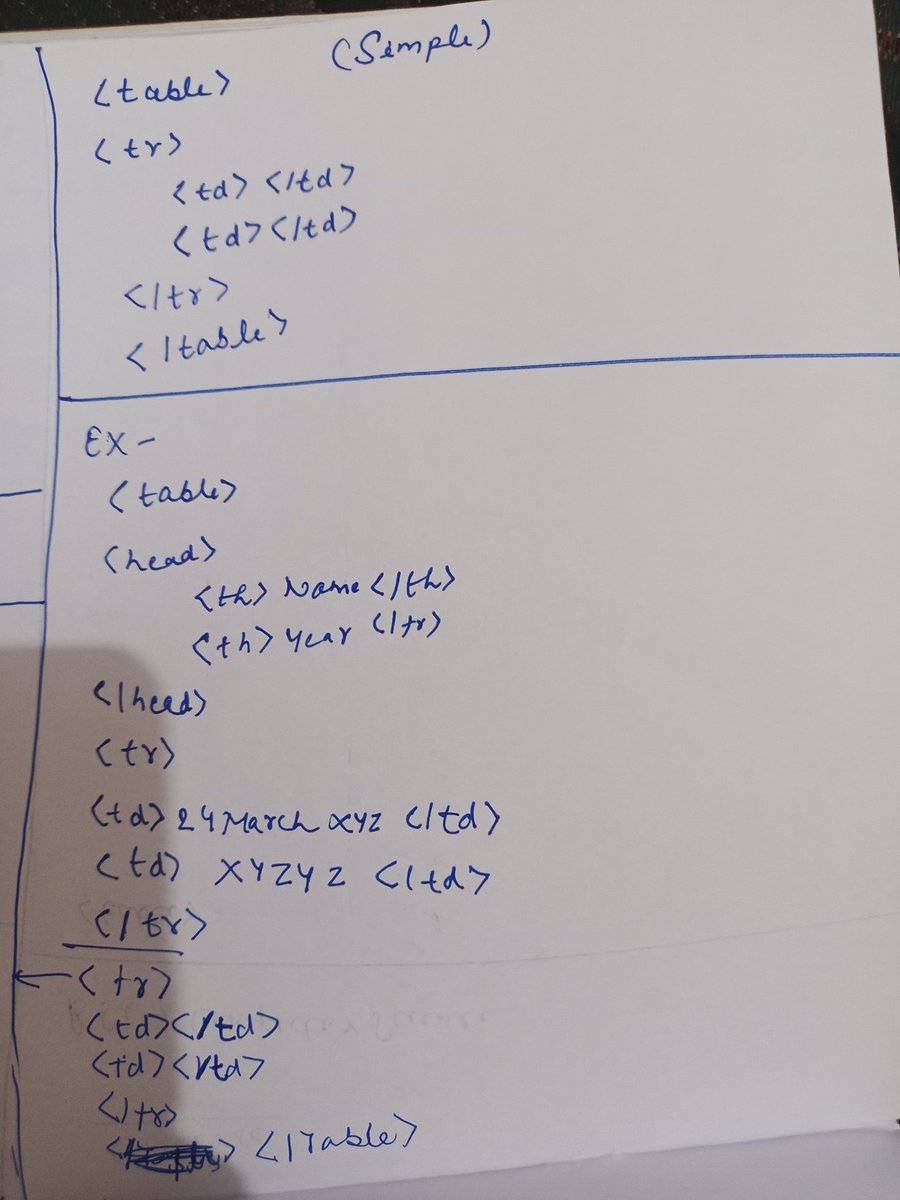 (Simple)
<table>
<tr>
<td> </td>
<td></td>
</tr>
</table>
EX -
<table>
<head>
<th> Name </th>
<th> year </tr>
</head>
<tr>
<td> 24 March XYZ </td>
<td> XYZYZ </td>
</tr>
<tr>
<td></td>
<td></td>
</tr>
</Table>